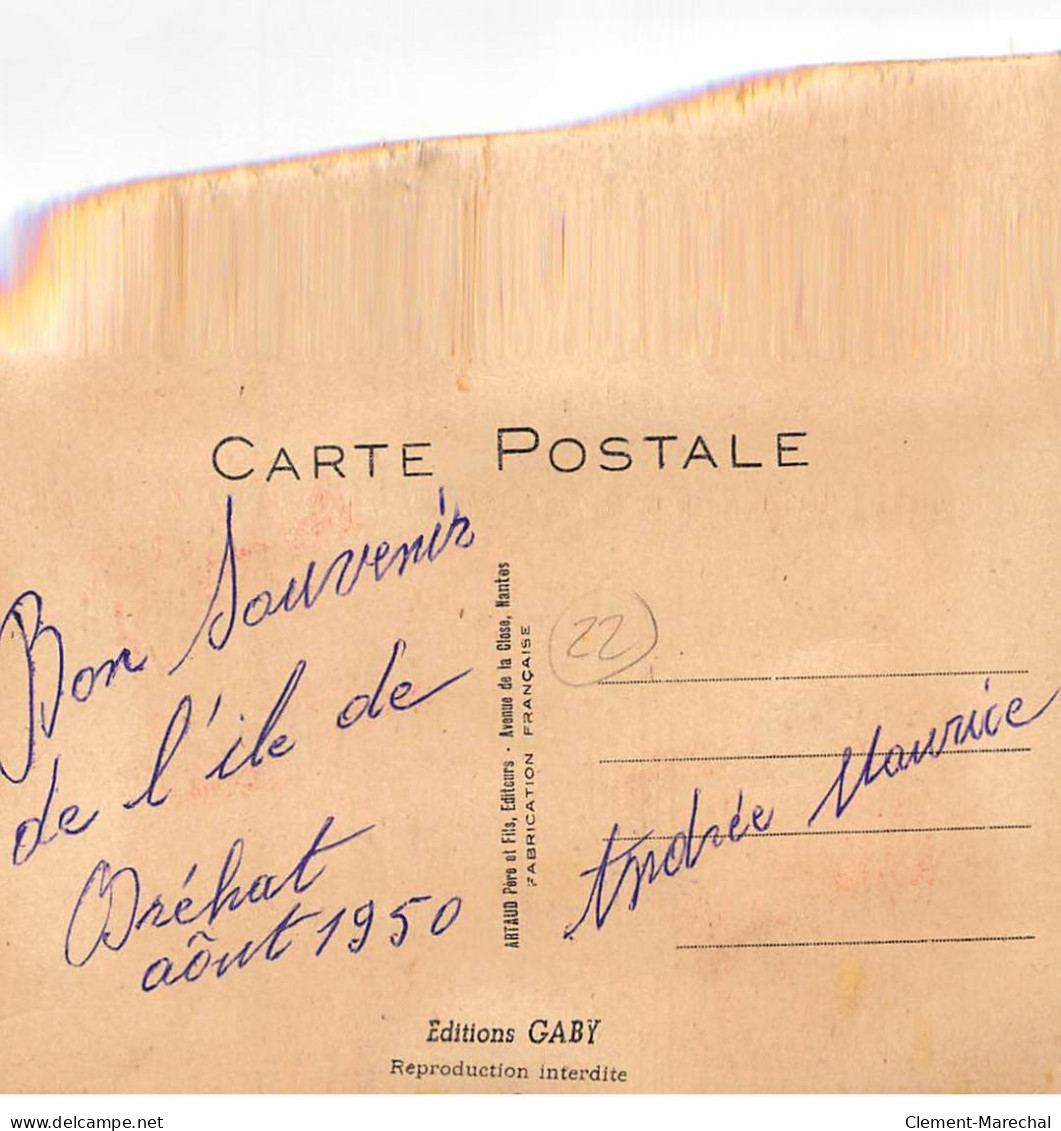 CARTE POSTALE
Bon Souvenir
de l'ile de
Bréhat
août 1950
ARTAUD Père et Fils, Editeurs - Avenue de la Close, Nantes
FABRICATION FRANÇAISE
22
Andrée Maurice
Editions GABY
Reproduction interdite
www.delcampe.net
Clement-Marechal